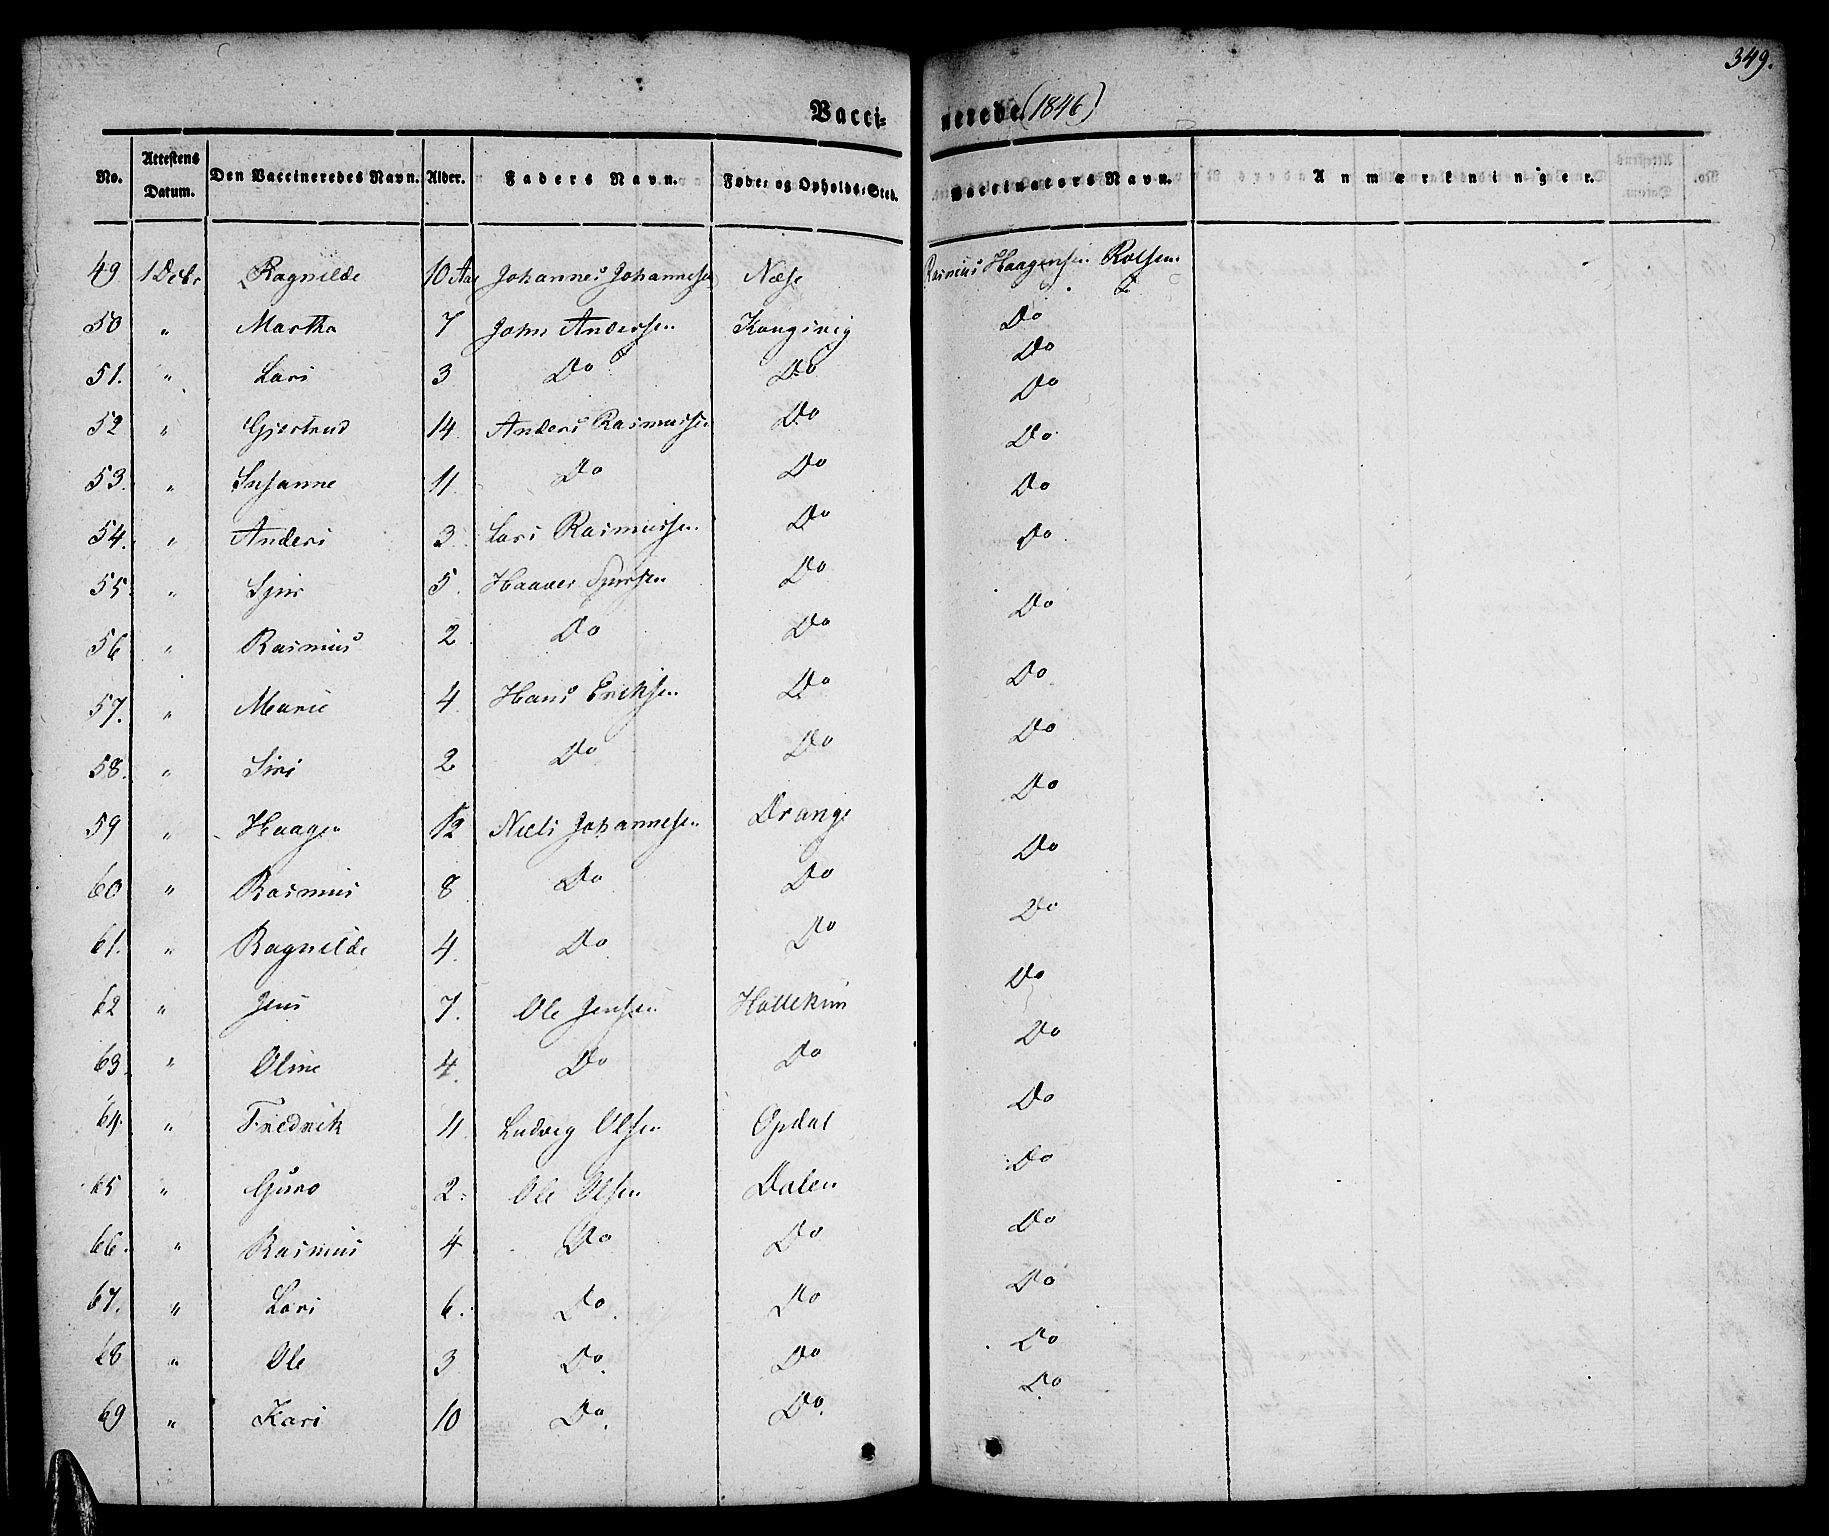 349.
Vacci- nerede (1846)
No. Attestens Datum. Den Vaccineredes Navn. Alder. Faders Navn. Føde- og Opholds-Sted. Vaccinators Navn. Anmærkninger.
49 1 Debr Ragnilde 10 Aar Johannes Johannesen Næse Rasmus Haagensen Rolfsen
50 " Martha 7 John Andersen Kongsvig Do
51. " Lars 3 Do Do Do
52 " Gjertrud 14. Anders Rasmussen Do Do
53. " Susanne 11. Do Do Do
54. " Anders 3. Lars Rasmussen Do Do
55. " Sjur 5. Haaver Sjursen Do Do
56 " Rasmus 2 Do Do Do
57. " Marie 4. Hans Eriksen Do Do
58. " Siri 2 Do Do Do
59 " Haagen 12 Niels Johannesen Drange Do
60 " Rasmus 8 Do Do Do
61. " Ragnilde 4. Do Do Do
62 " Jens 7. Ole Jensen Do
63. " Oline 4. Do Do Do
64. " Fredrik 11. Ludvig Olsen Opdal Do
65 " Guro 2. Ole Olsen Dalen Do
66. " Rasmus 4 Do Do Do
67. " Lars 6. Do. Do Do
68 " Ole 3 Do. Do Do
69 " Kari 10 Do. Do. Do